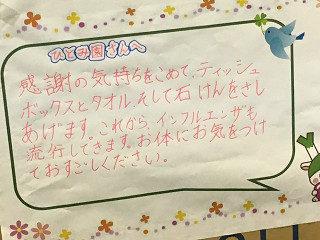 ひとみ園さんへ
感謝の気持ちをこめて、ティッシュ
ボックスとタオル、そして石けんをさし
あげます。これから、インフルエンザも
流行してきます。お体にお気をつけ
ておすごしください。